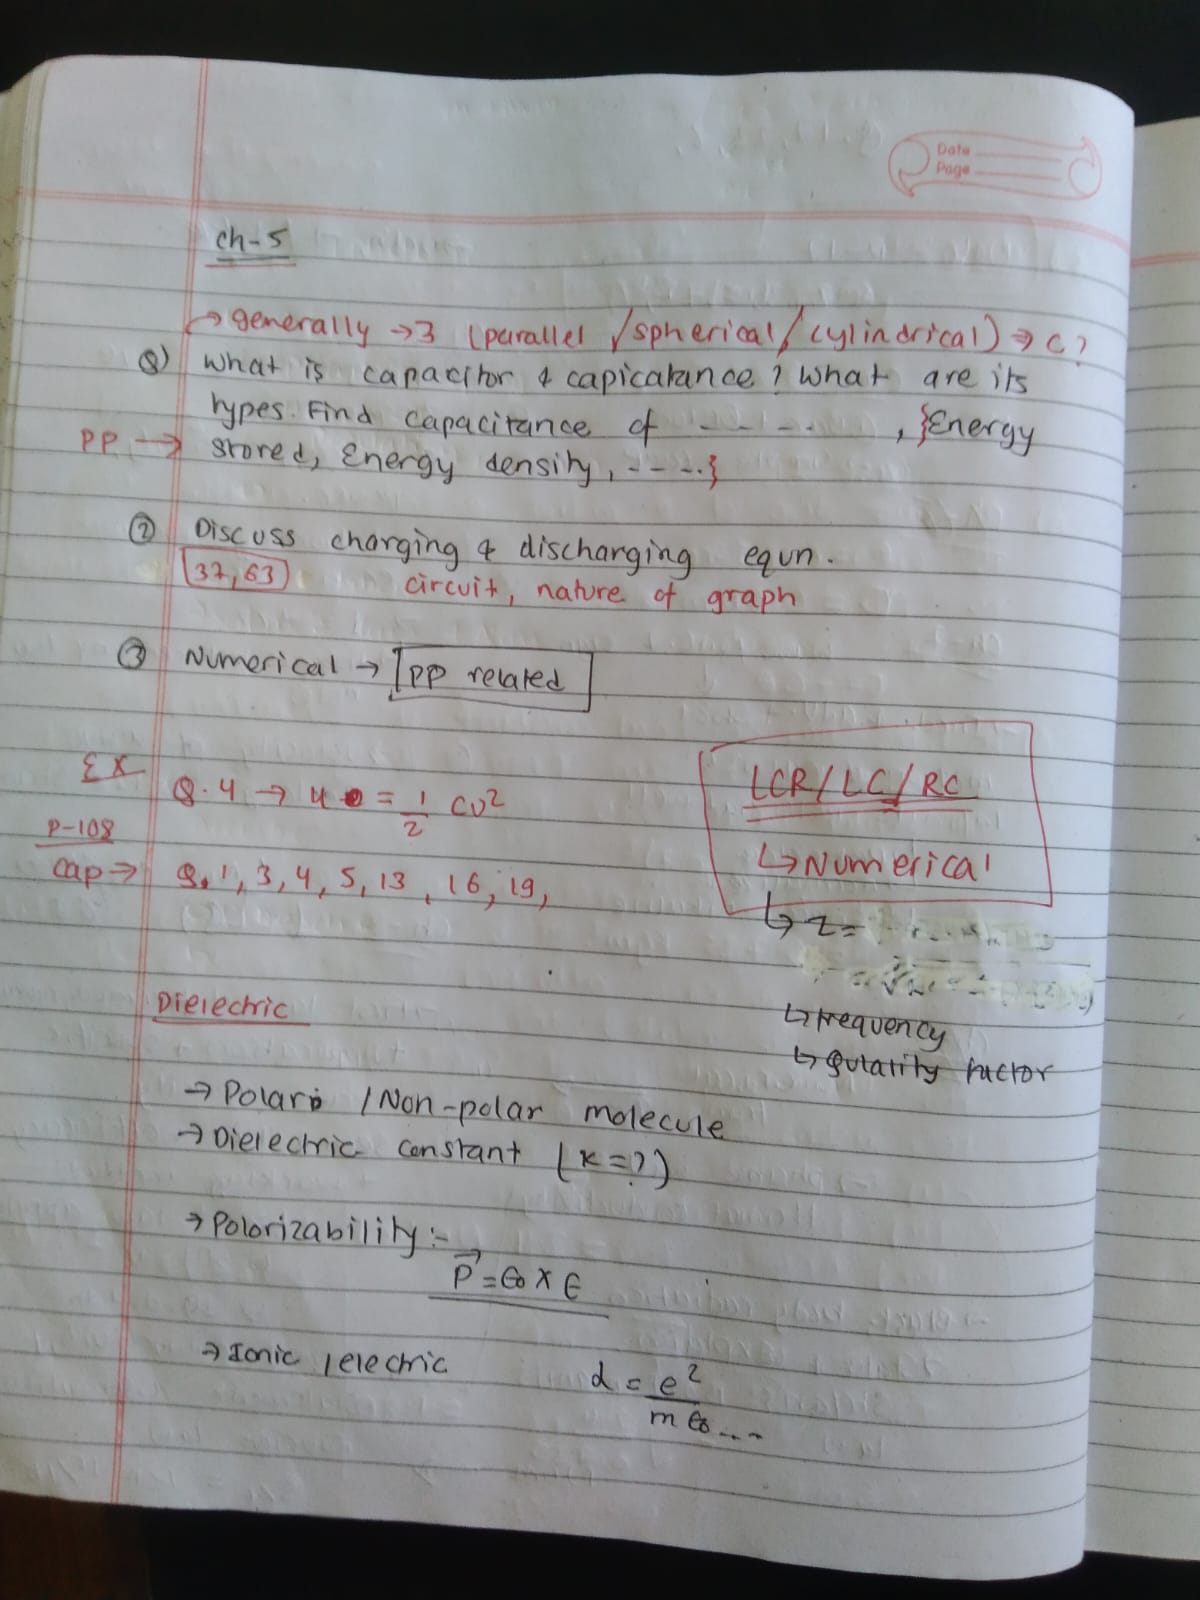 Date
Page
ch-5
→ generally → 3 (parallel / spherical / cylindrical) ⇒ C?
Q) What is capacitor & capicatance? What are its
types. Find capacitance of - - - - - , {Energy
PP → stored, Energy density, - - - -}
② Discuss charging & discharging equn.
37, 63
circuit, nature of graph
③ Numerical → PP related
EX
Q.4 → u = 1/2 CV²
P-108
Cap → Q. 1, 3, 4, 5, 13, 16, 19,
LCR/LC/RC
↳ Numerical
↳ Z =
↳ frequency
↳ Qulatity factor
Dielectric
→ Polar / Non-polar molecule
→ Dielectric constant (K=?)
→ Polorizability :-
P⃗ = ϵ₀ X E
→ Ionic / electric
α = e² / m ϵ₀ ...